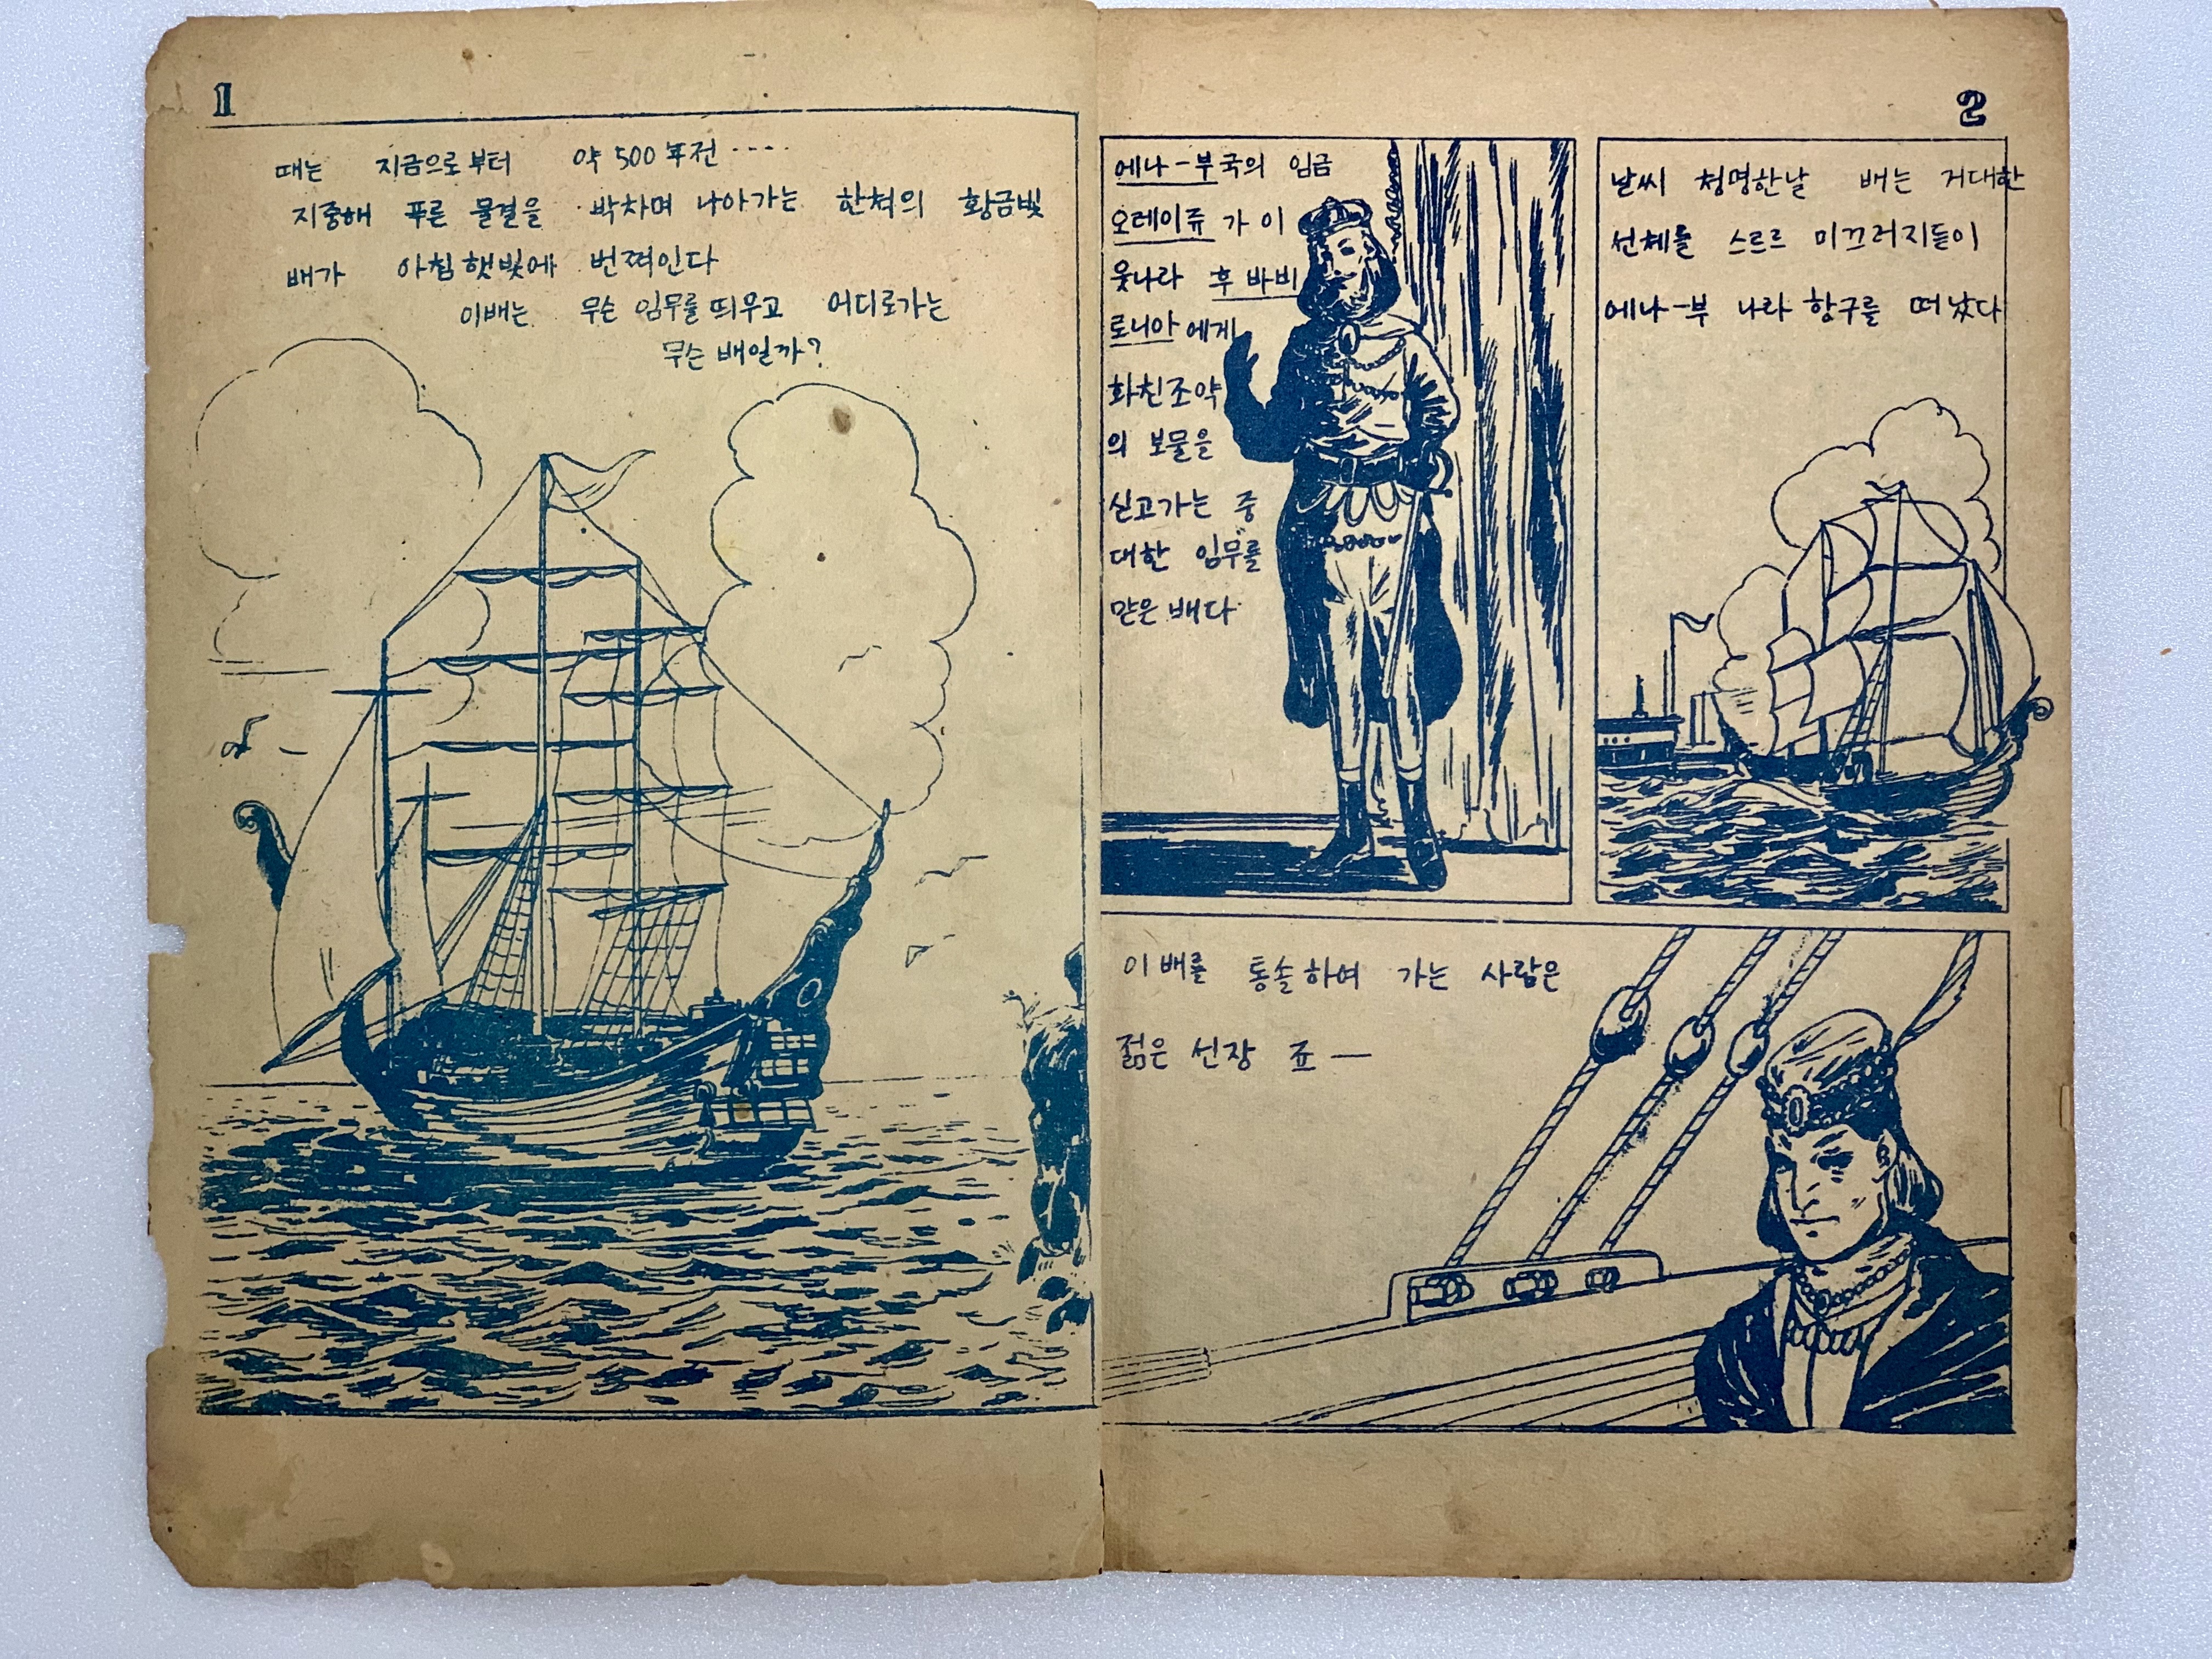 1
때는 지금으로부터 약 500年전 ‥‥
지중해 푸른 물결을 박차며 나아가는 한척의 황금빛
배가 아침햇빛에 번쩍인다
이배는 무슨 임무를 띄우고 어디로가는
무슨 배일까?
2
에나-부국의 임금
오레이쥬가 이
웃나라 후바비
로니아에게
화친조약
의 보물을
싣고가는 중
대한 임무를
맏은 배다
날씨 청명한날 배는 거대한
선체를 스르르 미끄러지듣이
에나-부 나라 항구를 떠났다
이배를 통솔하여 가는 사람은
젊은 선장 죠―